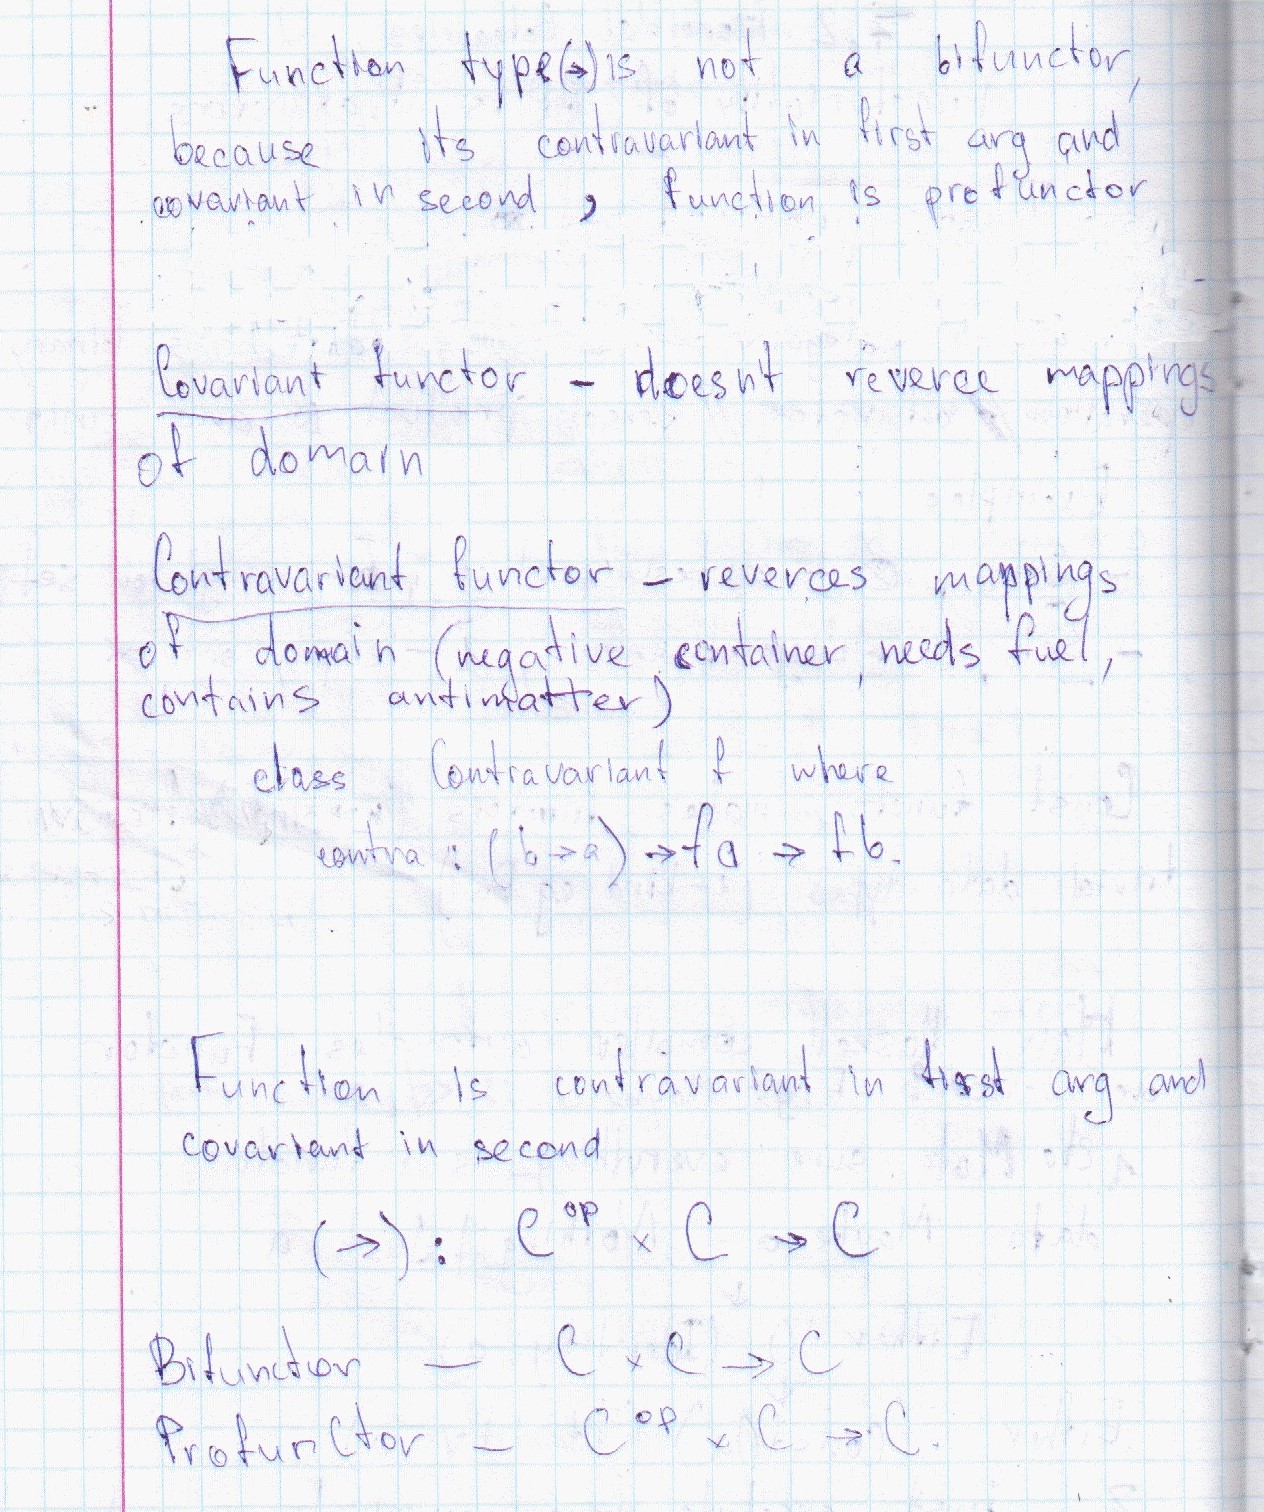 Function type(→) is not a bifunctor,
because its contravariant in first arg and
covariant in second, function is profunctor
Covariant functor - doesn't reverce mappings
of domain
Contravariant functor - reverces mappings
of domain (negative container, needs fuel,
contains antimatter)
class Contravariant f where
contra : (b→a) → fa → fb.
Function is contravariant in first arg and
covariant in second
(→) : C^op × C → C
Bifunctor — C × C → C
Profunctor — C^op × C → C.